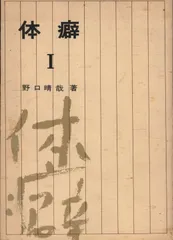 体癖
I
野口晴哉著
体癖